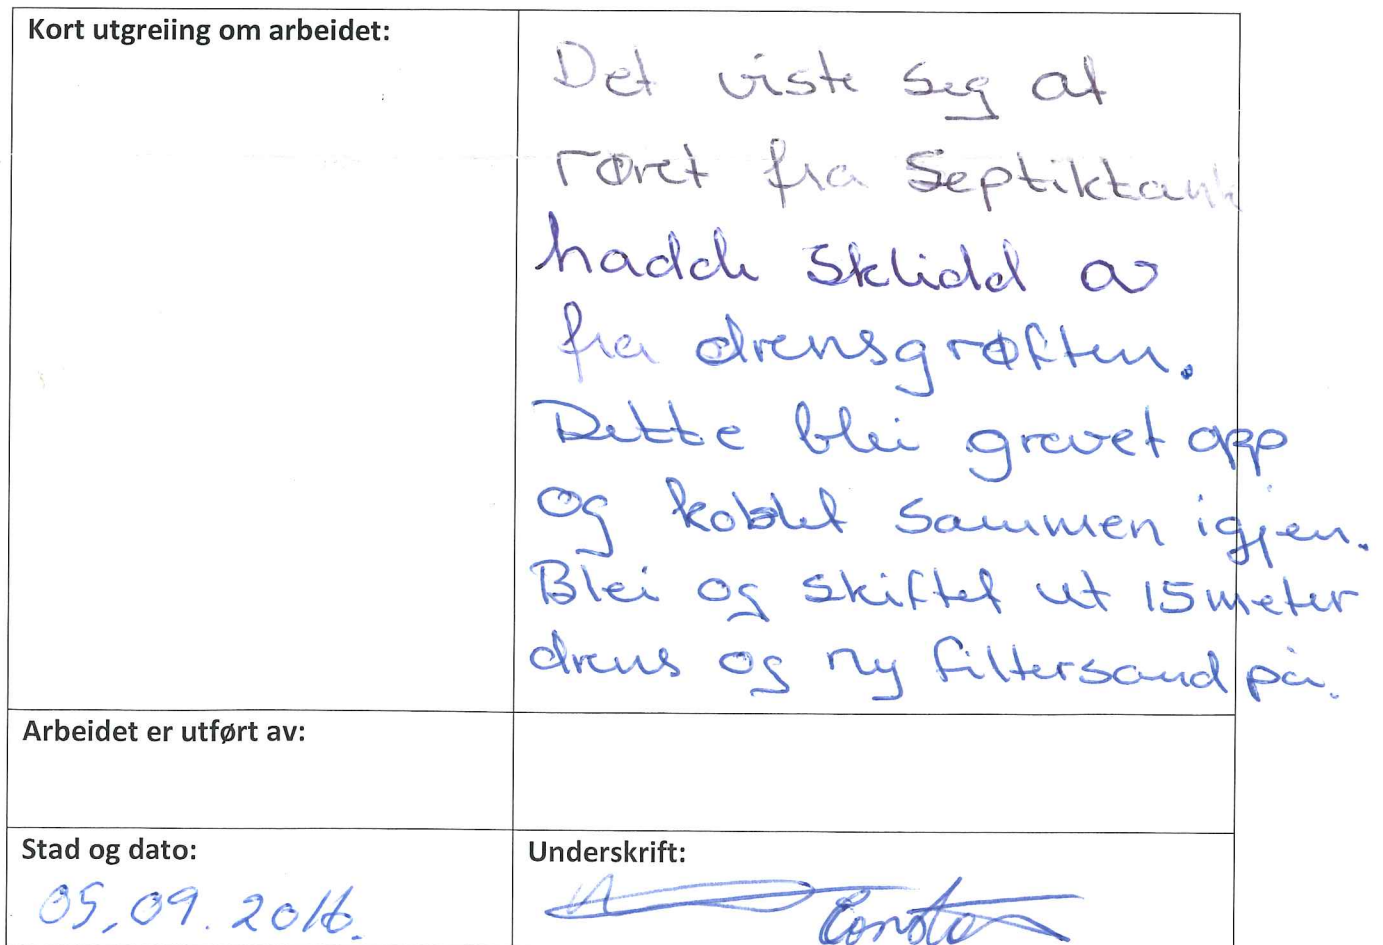 Kort utgreiing om arbeidet:
Det viste seg at
røret fra Septiktank
hadde Sklidd av
fra drensgrøften.
Dette blei gravet opp
og koblet sammen igjen.
Blei og skiftet ut 15 meter
drens og ny filtersand på.
Arbeidet er utført av:
Stad og dato:
Underskrift:
05.09.2016.